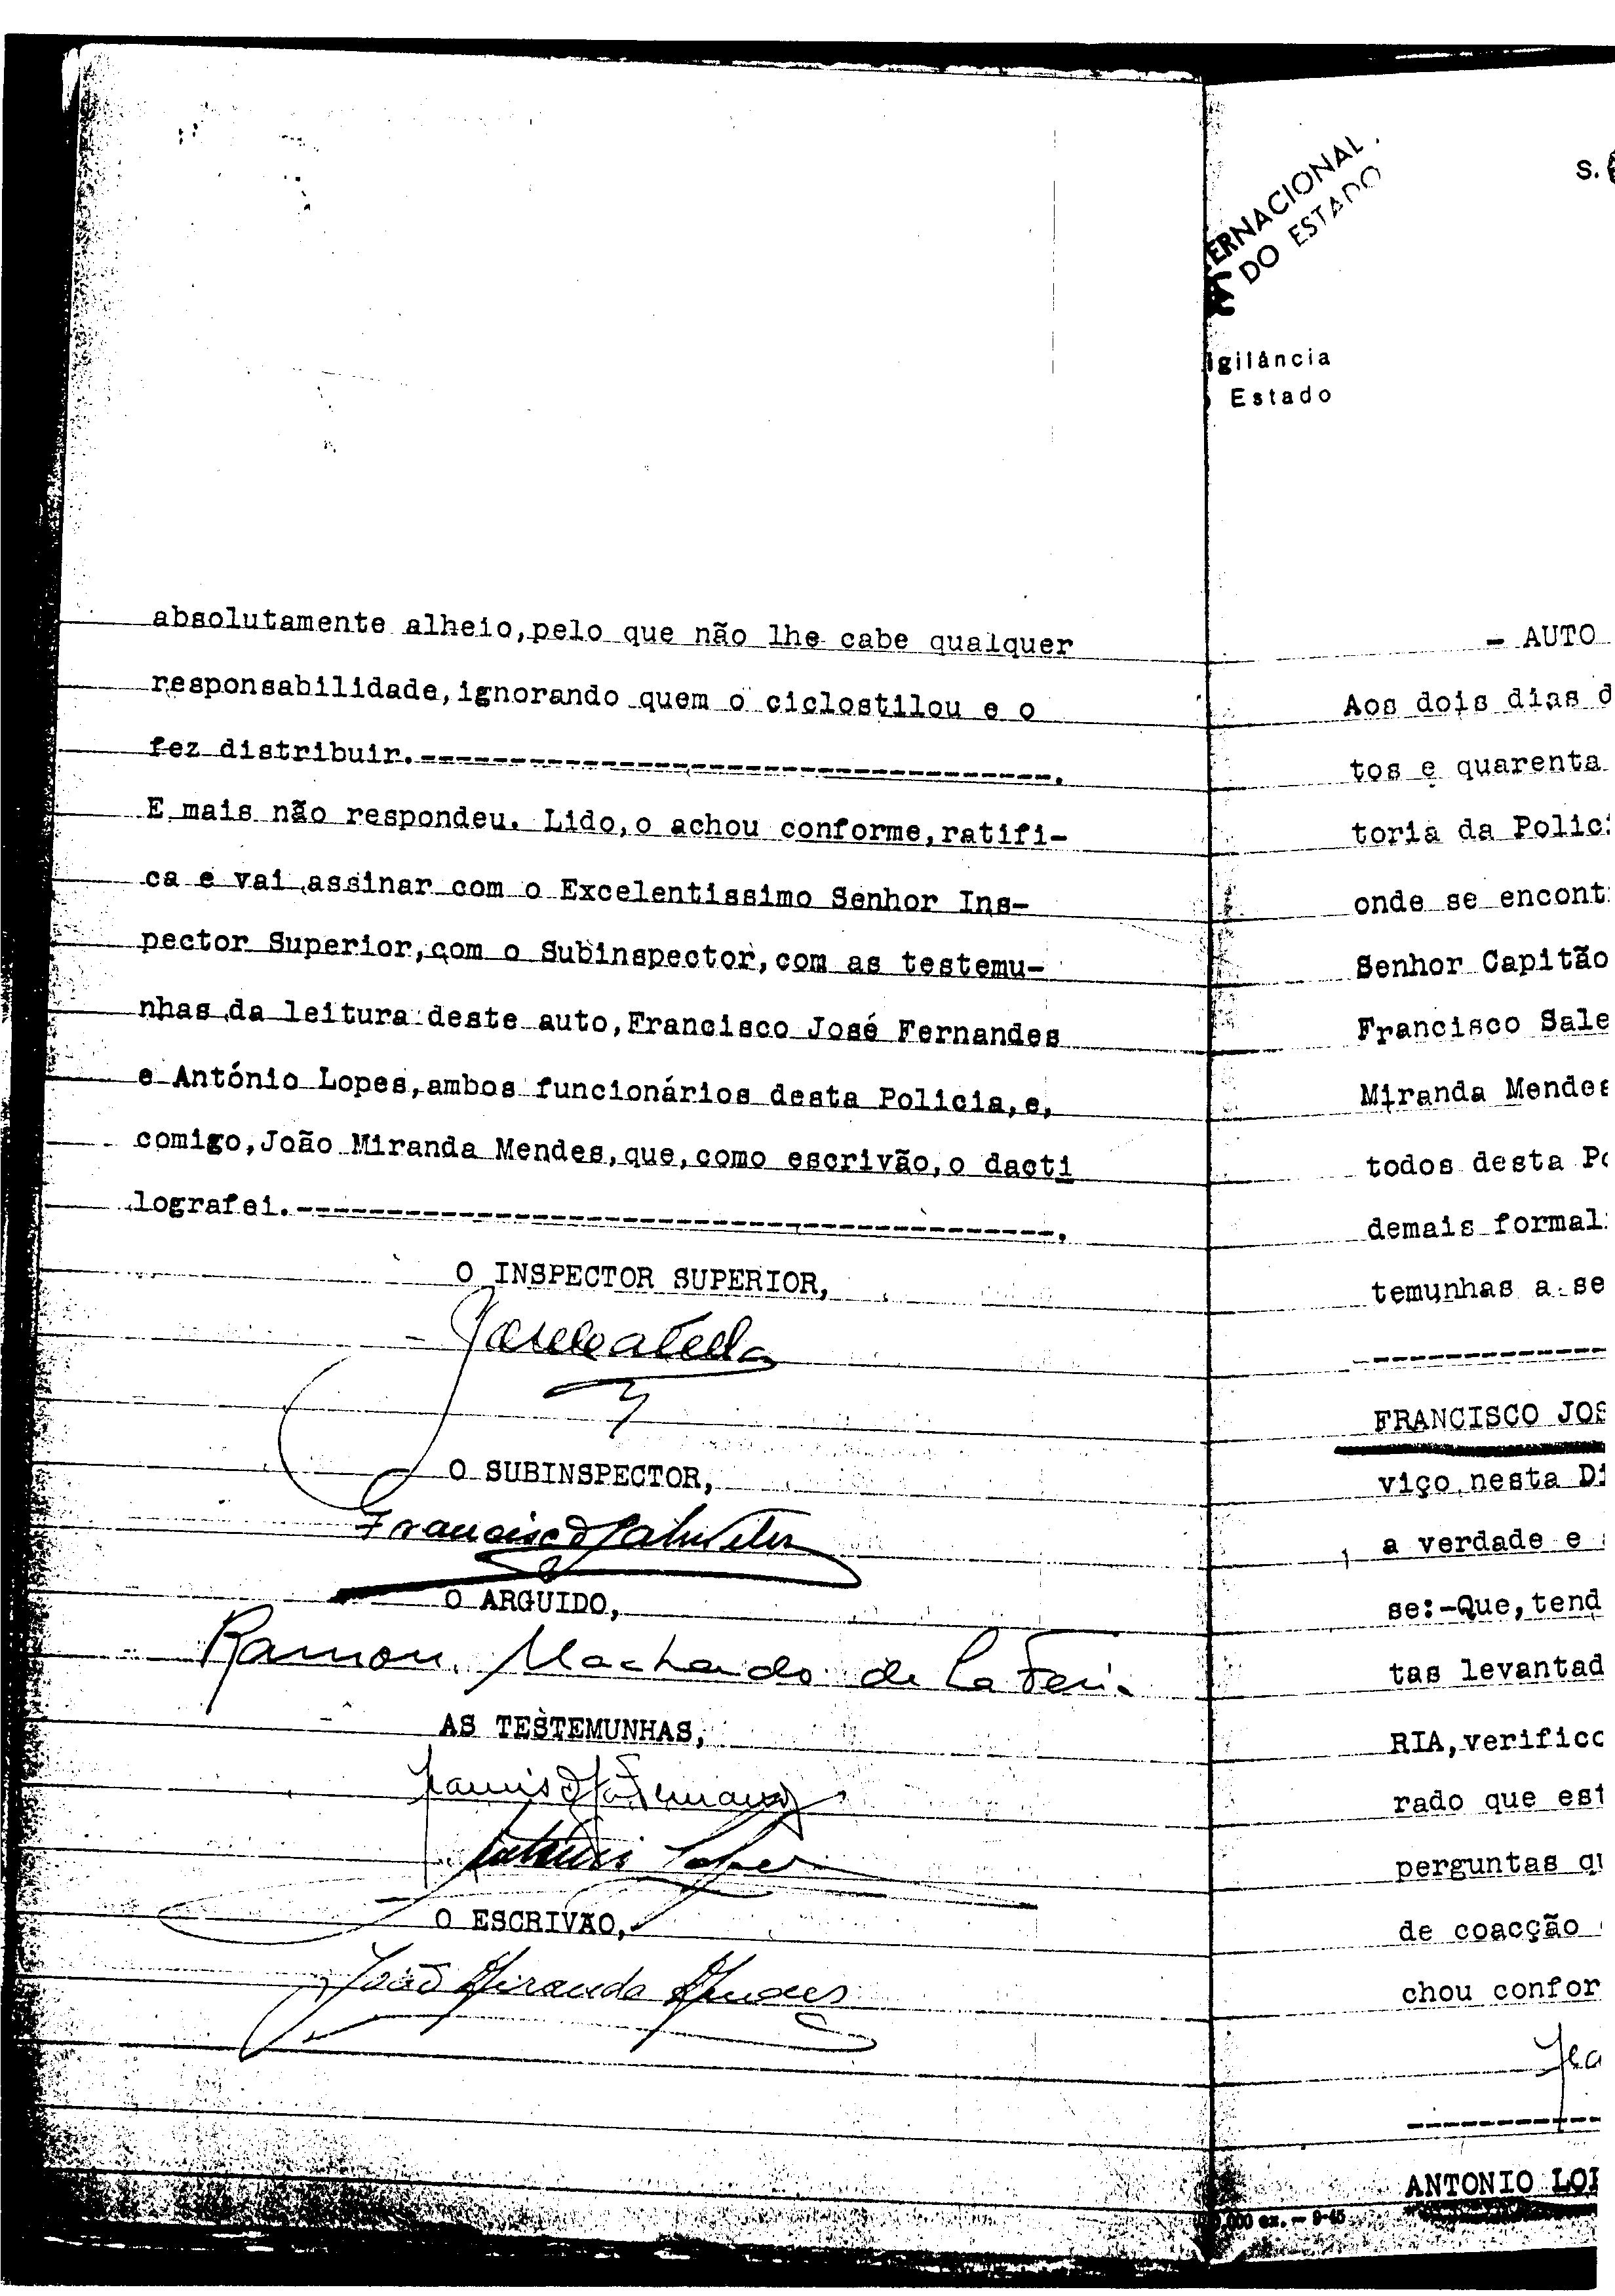 absolutamente alheio,pelo que não lhe cabe qualquer
responsabilidade,ignorando quem o ciclostilou e o
fez distribuir.-----------------------------------.
E mais não respondeu. Lido,o achou conforme,ratifi-
ca e vai assinar com o Excelentissimo Senhor Ins-
pector Superior,com o Subinspector,com as testemu-
nhas da leitura deste auto,Francisco José Fernandes
e António Lopes,ambos funcionários desta Policia,e,
comigo,João Miranda Mendes,que,como escrivão,o dacti
lografei.------------------------------------------.
O INSPECTOR SUPERIOR,
O SUBINSPECTOR,
Francisco
O ARGUIDO,
Ramon Machado de la Feria
AS TESTEMUNHAS,
António Lopes
O ESCRIVÃO,
João Miranda Mendes
ERNACIONAL
DO ESTADO
S.
igilância
Estado
- AUTO
Aos dois dias d
tos e quarenta
toria da Polici
onde se encont
Senhor Capitão
Francisco Sale
Miranda Mendes
todos desta Po
demais formali
temunhas a se
--------------
FRANCISCO JOS
viço nesta Di
a verdade e
se:-Que,tend
tas levantad
RIA,verifico
rado que est
perguntas qu
de coacção
chou confor
-------------
ANTONIO LOP
000 ex. - 9-45